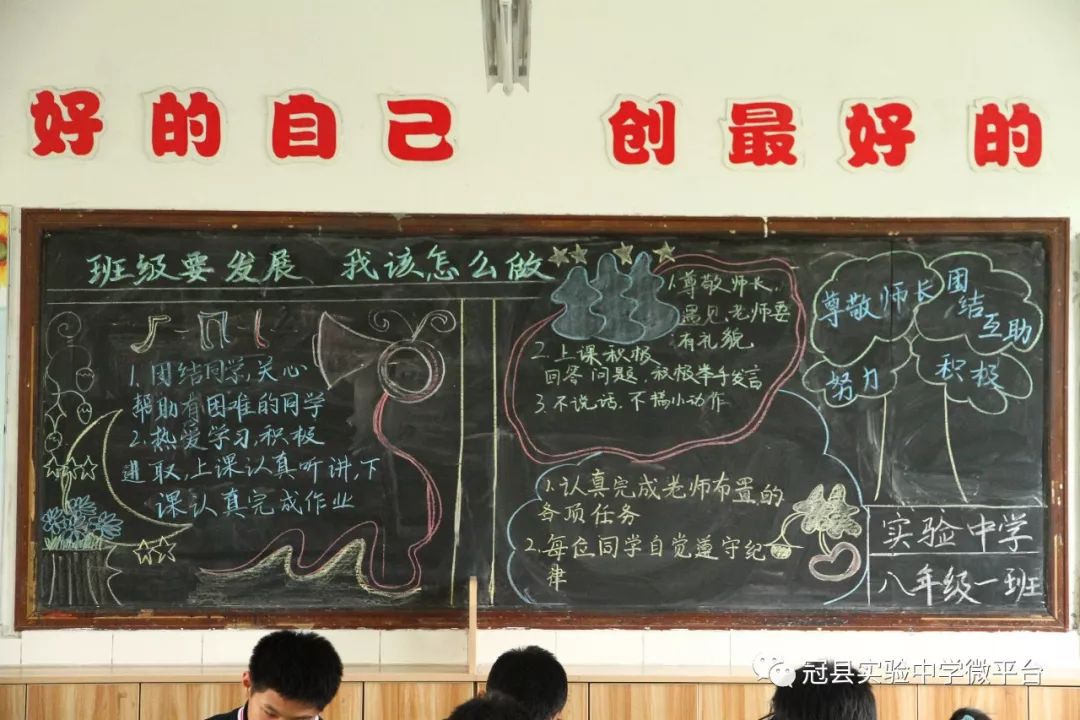 好的自己 创最好的
班级要发展 我该怎么做
1.团结同学,关心
帮助有困难的同学
2.热爱学习,积极
进取,上课认真听讲,下
课认真完成作业
1.尊敬师长,
遇见老师要
有礼貌
2.上课积极
回答问题,积极举手发言
3.不说话,不搞小动作
1.认真完成老师布置的
各项任务
2.每位同学自觉遵守纪
律
尊敬师长
团结互助
努力
积极
实验中学
八年级一班
冠县实验中学微平台